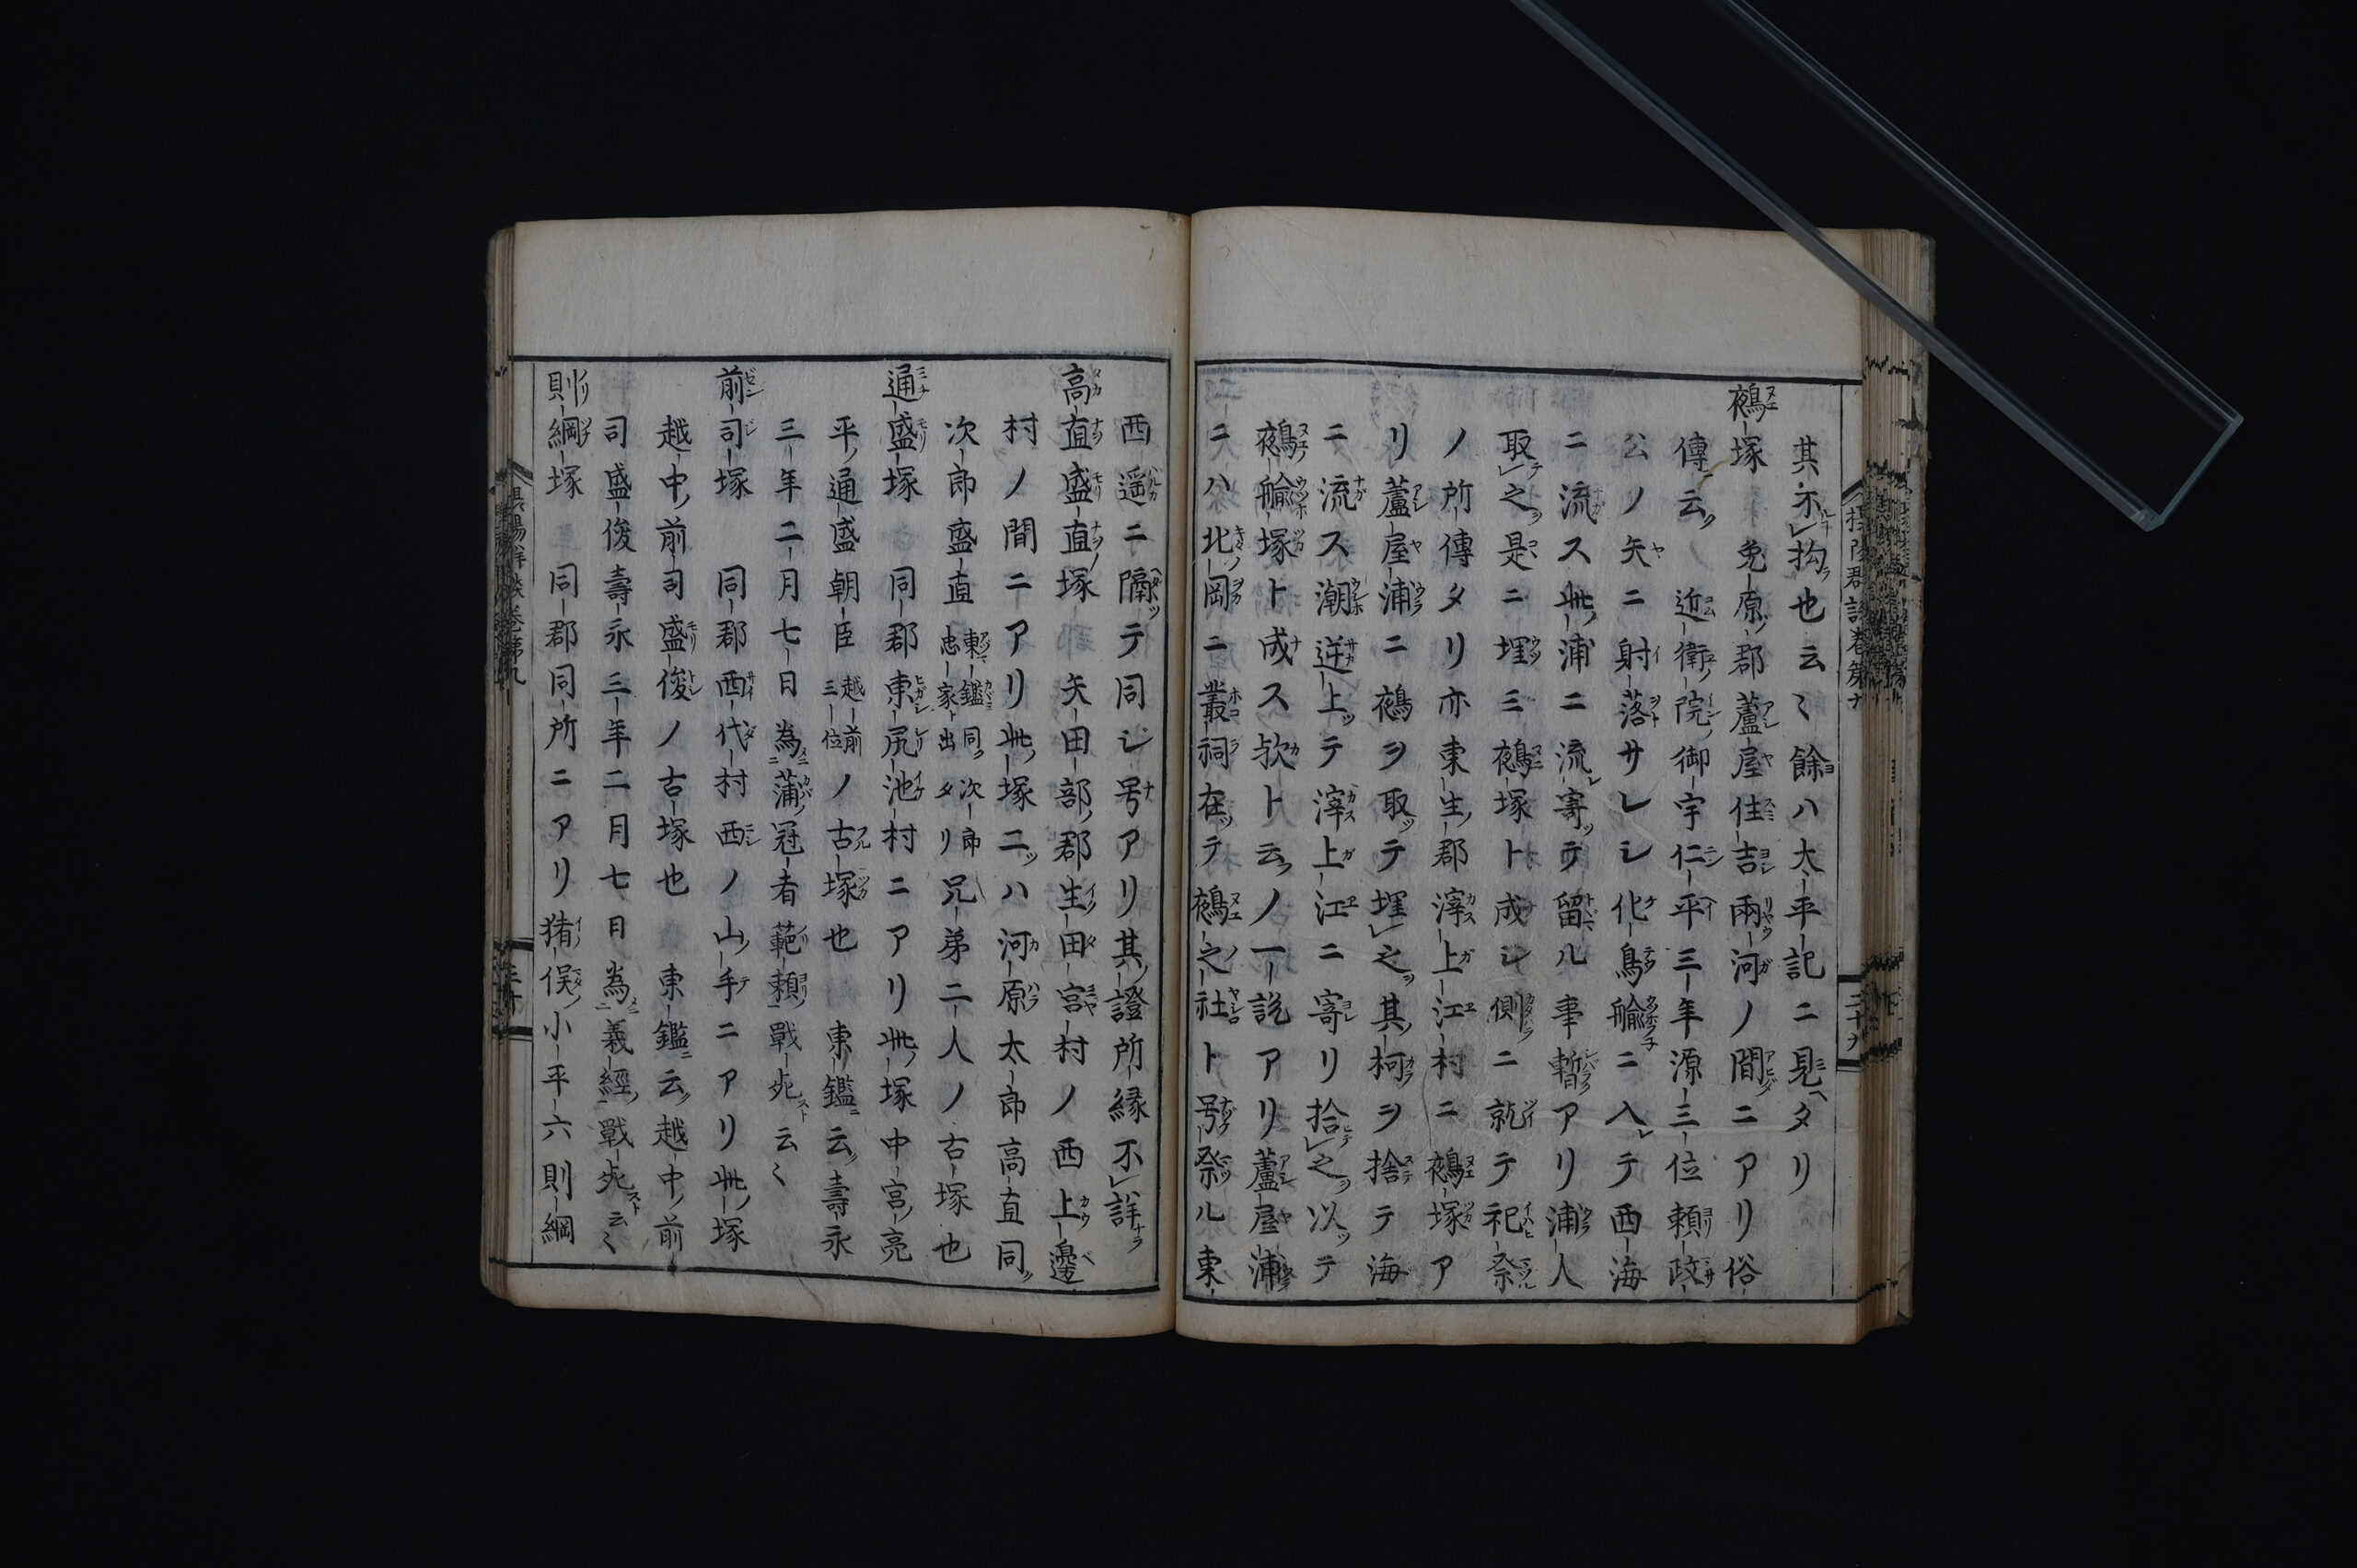 其不拘也云〻餘ハ太平記ニ見ヘタリ
鵺塚 兔原郡蘆屋住吉兩河ノ間ニアリ俗
傳云ノ近衛院御宇仁平三年源三位頼政
公ノ矢ニ射落サレシ化鳥艫ニ入テ西海
ニ流ス此浦ニ流寄テ留ル事暫アリ浦人
取之是ニ埋ミ鵺塚ト成シ側ニ就テ祀祭
ノ所傳タリ亦東生郡滓上江村ニ鵺塚ア
リ蘆屋浦ニ鵺ヲ取テ埋之其柯ヲ捨テ海
ニ流ス潮逆上テ滓上江ニ寄リ拾之以テ
鵺塚ト成ス欤ト云ノ一説アリ蘆屋浦
ニハ北岡ニ叢祠在テ鵺之社ト号祭ル東
西遥ニ隔テ同シ号アリ其證所縁不詳
高直盛直塚 矢田部郡生田宮村ノ西上邊
村ノ間ニアリ此塚二ツハ河原太郎高直同
次郎盛直 東鑑同次郎忠家ト出タリ 兄弟二人ノ古塚也
通盛塚 同郡東尻池村ニアリ此塚中宮亮
平通盛朝臣 越前三位 ノ古塚也 東鑑云壽永
三年二月七日為蒲冠者範頼戰死云〻
前司塚 同郡西代村西ノ山手ニアリ此塚
越中前司盛俊ノ古塚也 東鑑云越中前
司盛俊壽永三年二月七日為義經戰死云〻
則綱塚 同郡同所ニアリ猪俣小平六則綱